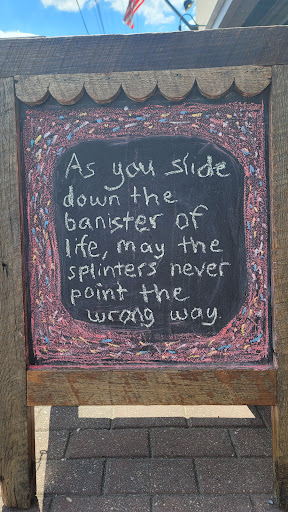 As you slide
down the
banister of
life, may the
splinters never
point the
wrong way.